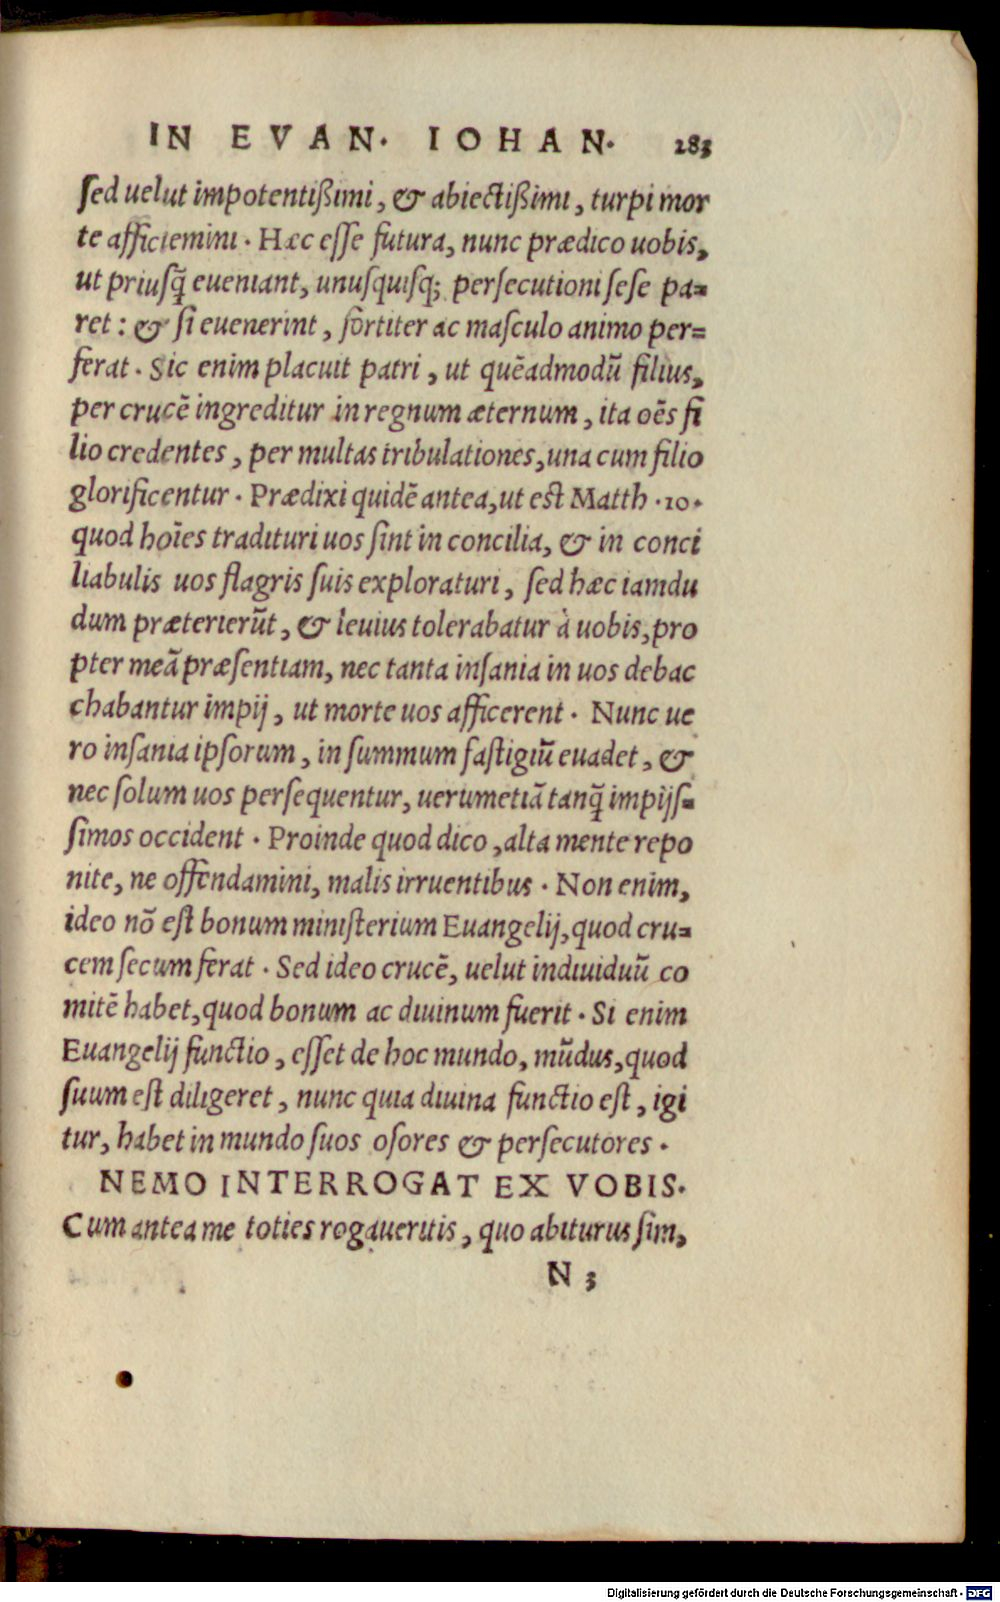 IN EVAN. IOHAN. 283
sed uelut impotentißimi, & abiectißimi, turpi mor
te afficiemini. Hæc esse futura, nunc prædico uobis,
ut priusq̃ eueniant, unusquisq; persecutioni sese pa=
ret: & si euenerint, fortiter ac masculo animo per=
ferat. Sic enim placuit patri, ut quẽadmodũ filius,
per crucẽ ingreditur in regnum æternum, ita oẽs fi
lio credentes, per multas tribulationes, una cum filio
glorificentur. Prædixi quidẽ antea, ut est Matth. 10.
quod hoĩes tradituri uos sint in concilia, & in conci
liabulis uos flagris suis exploraturi, sed hæc iamdu
dum præterierũt, & leuius tolerabatur à uobis, pro
pter meã præsentiam, nec tanta insania in uos debac
chabantur impij, ut morte uos afficerent. Nunc ue
ro insania ipsorum, in summum fastigiũ euadet, &
nec solum uos persequentur, uerumetiã tanq̃ impijs=
simos occident. Proinde quod dico, alta mente repo
nite, ne offendamini, malis irruentibus. Non enim,
ideo nõ est bonum ministerium Euangelij, quod cru=
cem secum ferat. Sed ideo crucẽ, uelut indiuiduũ co
mitẽ habet, quod bonum ac diuinum fuerit. Si enim
Euangelij functio, esset de hoc mundo, mũdus, quod
suum est diligeret, nunc quia diuina functio est, igi
tur, habet in mundo suos osores & persecutores.
NEMO INTERROGAT EX VOBIS.
Cum antea me toties rogaueritis, quo abiturus sim,
N 3
Digitalisierung gefördert durch die Deutsche Forschungsgemeinschaft - DFG